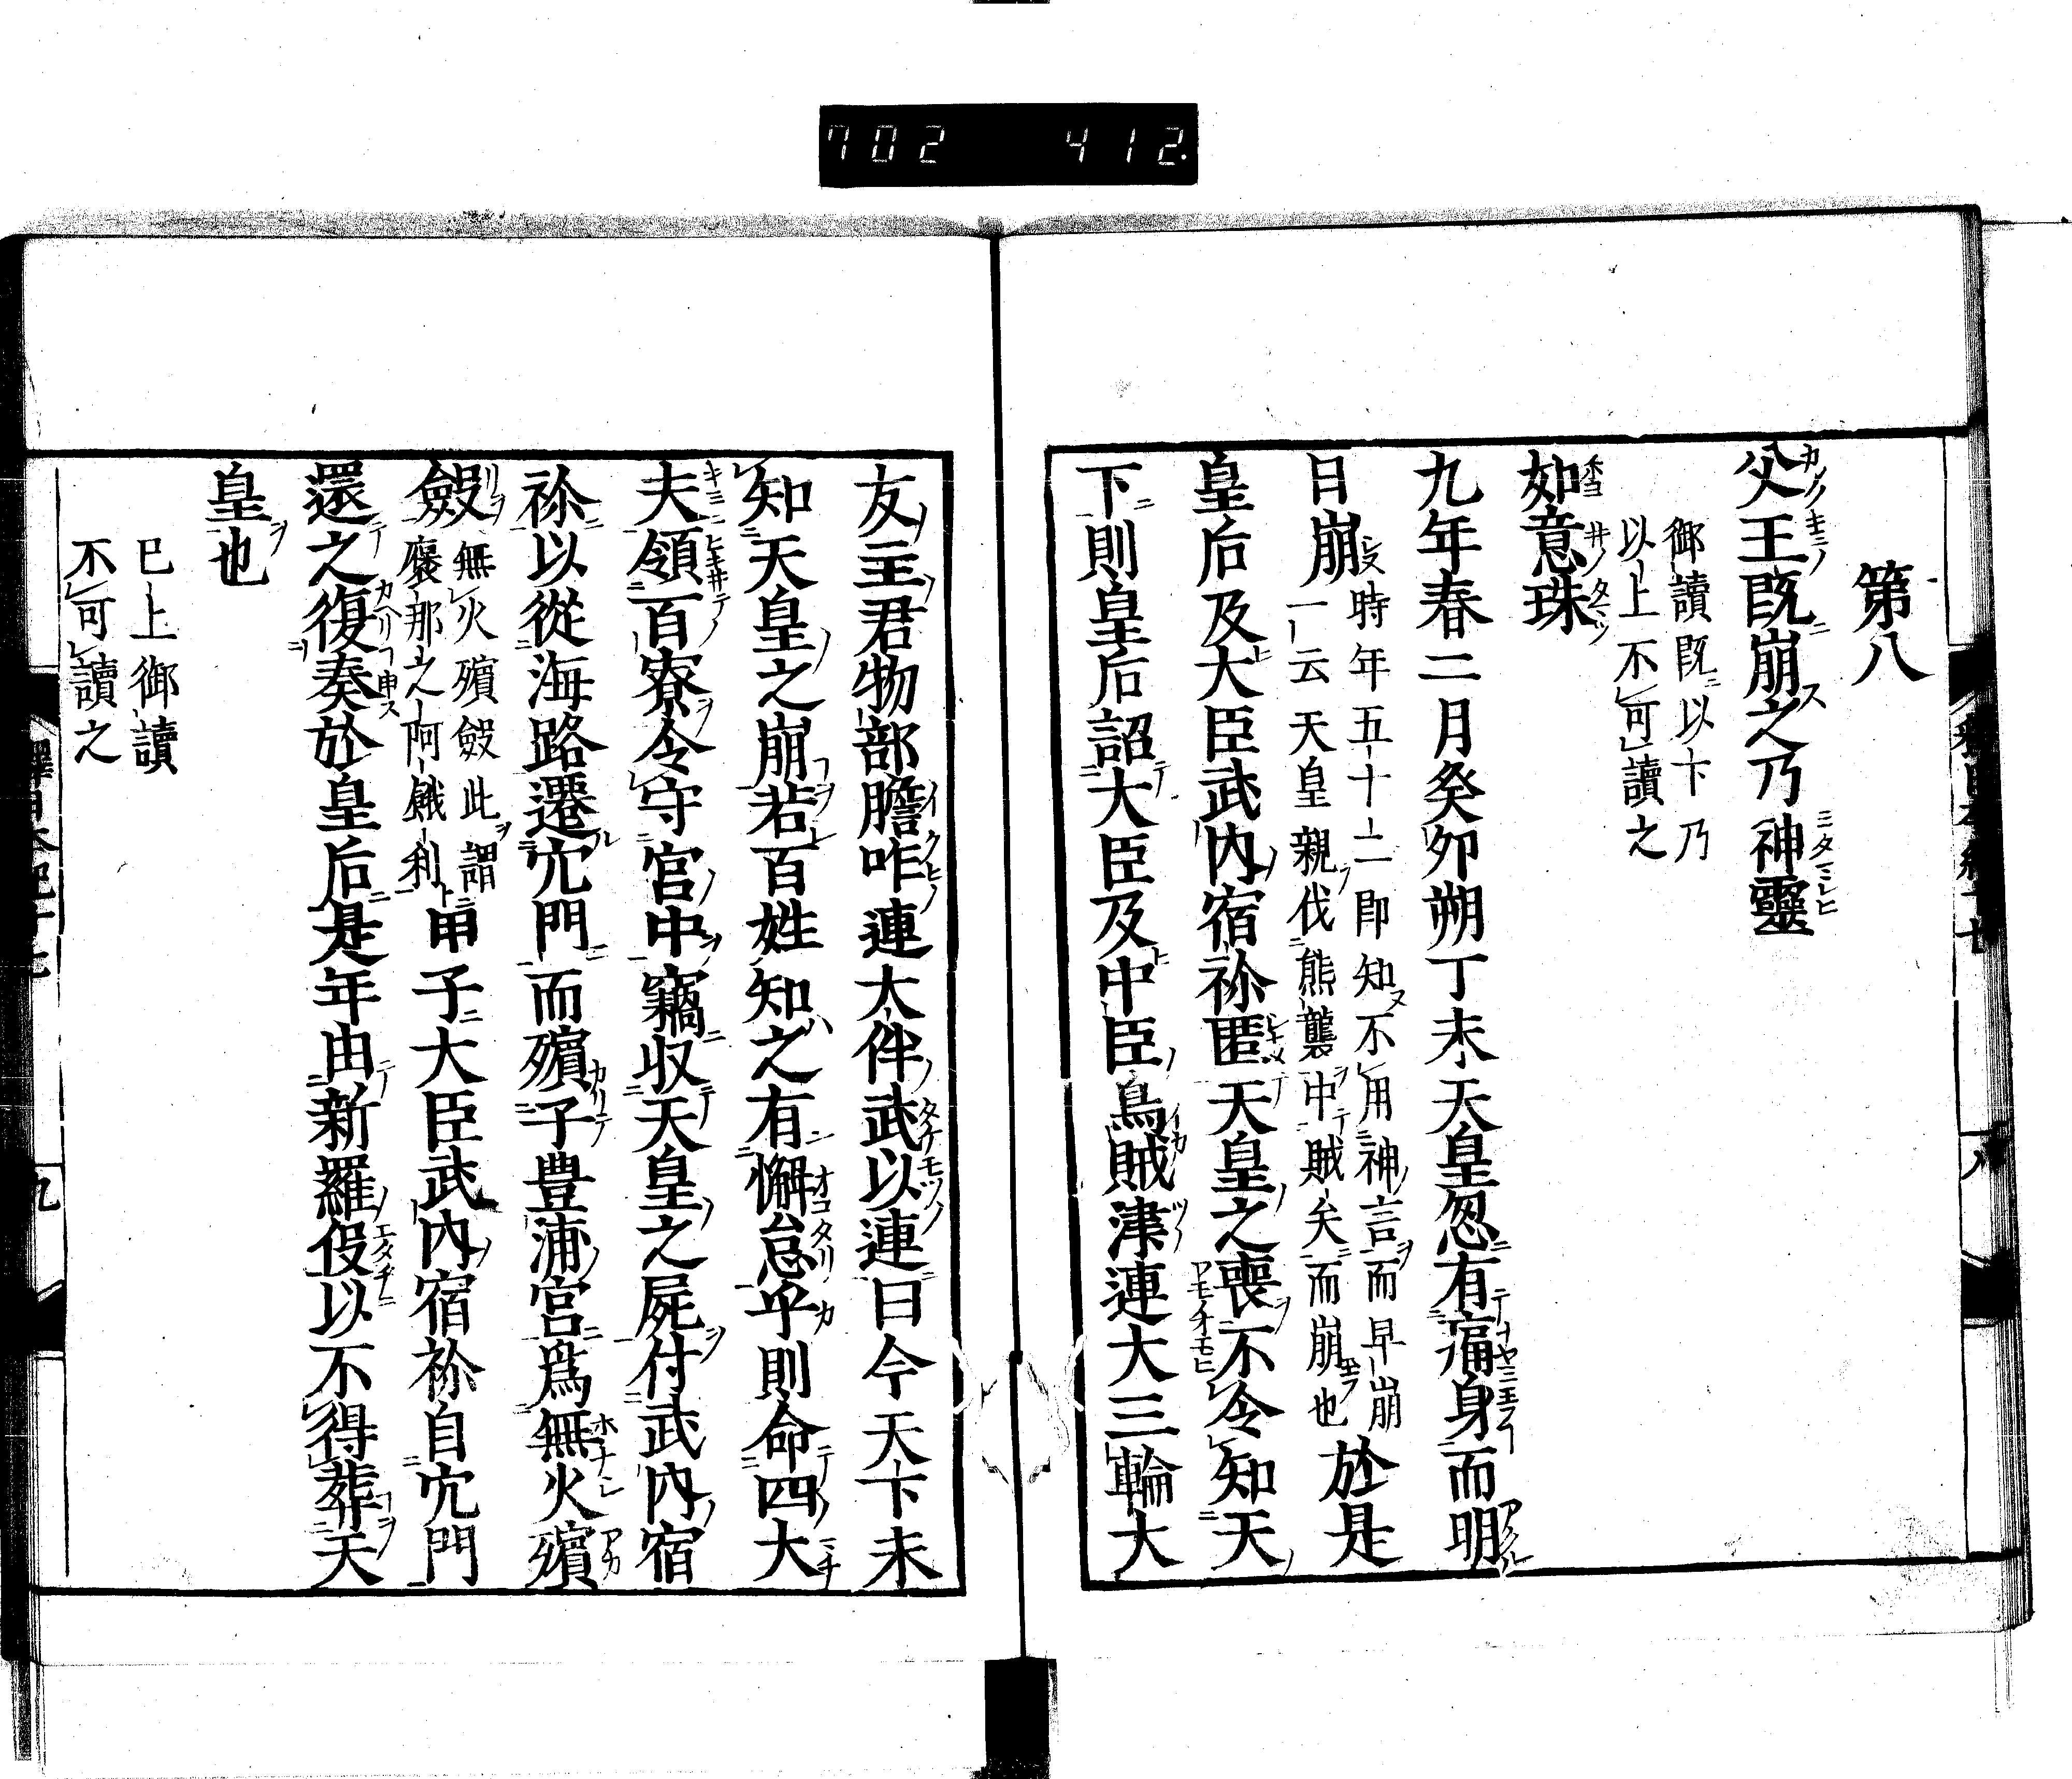 702 412.
第八
父王既崩之乃神靈
御讀既以下乃
以上不可讀之
如意珠
九年春二月癸卯朔丁未天皇忽有痛身而明
日崩時年五十二即知不用神言而早崩
一云天皇親伐熊襲中賊矢而崩也於是
皇后及大臣武内宿祢匿天皇之喪不令知天
下則皇后詔大臣及中臣烏賊津連大三輪大
友主君物部膽咋連大伴武以連曰今天下未
知天皇之崩若百姓知之有懈怠乎則命四大
夫領百寮令守宮中竊収天皇之屍付武内宿
祢以從海路遷穴門而殯于豊浦宮爲無火殯
斂無火殯斂此謂
褒那之阿餓利甲子大臣武内宿祢自穴門
還之復奏於皇后是年由新羅役以不得葬天
皇也
已上御讀
不可讀之